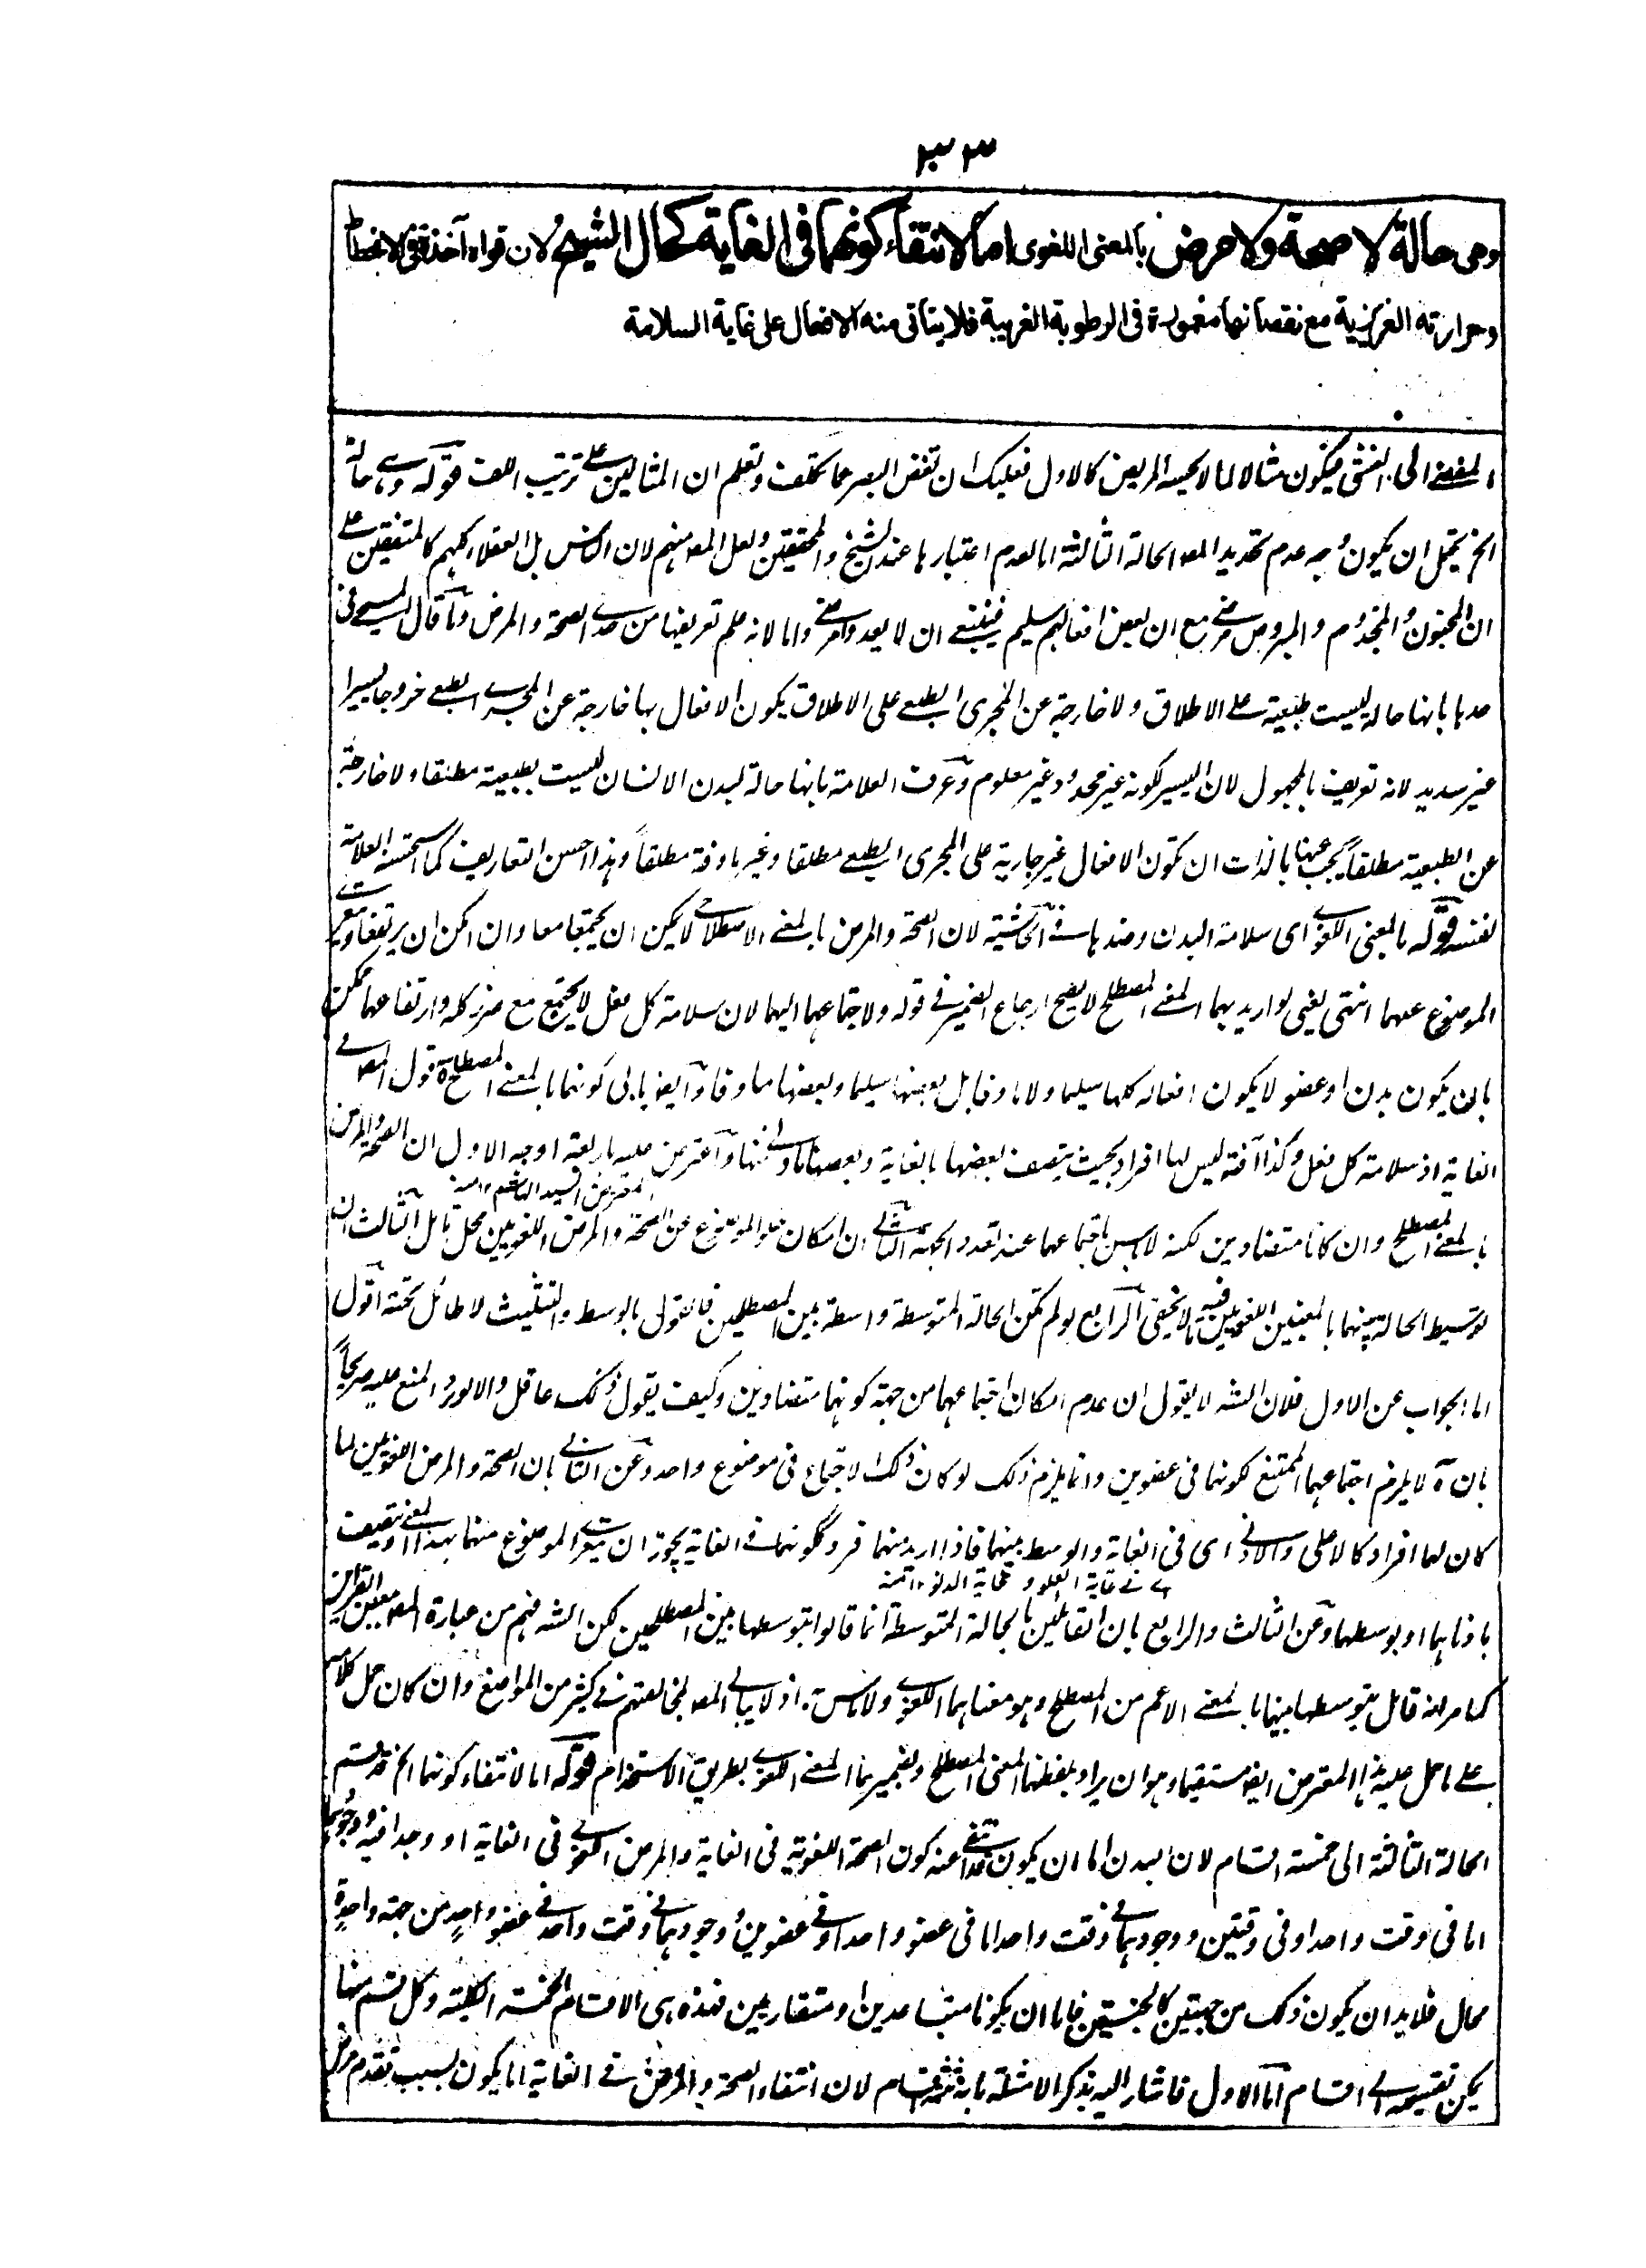 ٢٣٣
وهى حالة لا صحة ولا مرض بالمعنى اللغوى اما لانتفاء كونهما فى الغاية كحال الشيوخ لان قواه آخذة فى الانحطاط
وحرارته الغريزية مع نقصانها مغمورة فى الرطوبة الغريبة فلا يتاتى منه الافعال على غاية السلامة
المفضى الى الغشى فيكون مثالا لما لا يحسه المريض كالاول فعليك ان تغض البصر عما تكلف وتعلم ان المثالين على ترتيب اللف قوله وهى حالة
الخ يحتمل ان يكون وجه عدم تحديد المصـ الحالة الثالثة اما لعدم اعتبارها عند الشيخ والمحققين ولعل المصـ منهم لان الناس بل العقلاء كلهم كالمتفقين على
ان المجنون والمجذوم والمبروص مرضى مع ان بعض افعالهم سليم فينبغى ان لا يعدوا مرضى واما لانه علم تعريفها من حدى الصحة والمرض وما قال المسيحى فى
حدها بانها حالة ليست طبيعية على الاطلاق ولا خارجة عن المجرى الطبعى على الاطلاق يكون الافعال بها خارجة عن المجرى الطبعى خروجا يسيرا
غير سديد لانه تعريف بالمجهول لان اليسير لكونه غير محدود غير معلوم وعرف العلامة بانها حالة لبدن الانسان ليست بطبيعية مطلقا ولا خارجة
عن الطبيعية مطلقا يجب عنها بالذات ان تكون الافعال غير جارية على المجرى الطبعى مطلقا وغير ماوفة مطلقا وهذا احسن التعاريف كما استحسنه العلامة
نفسه قوله بالمعنى اللغوى اى سلامة البدن وضدها فى الحاشية لان الصحة والمرض بالمعنى الاصطلاحى لا يمكن ان يجتمعا معا وان امكن ان يرتفعا ويعرى
الموضوع عنهما انتهى يعنى لو اريد بهما المعنى المصطلح لا يصح ارجاع الضمير فى قوله ولاجتماعهما اليهما لان سلامة كل فعل لا يجتمع مع ضرر كله وارتفاعهما ممكن
بان يكون بدن او عضو لا يكون افعاله كلها سليما ولا ماوفا بل بعضها سليما وبعضها ماوفا وايضا يابى كونهما بالمعنى المصطلح قول المصـ فى
الغاية اذ سلامة كل فعل وكذا آفته ليس لها افراد بحيث يتصف بعضها بالغاية وبعضها بادنى منها واعترض عليه باربعة اوجه الاول ان الصحة والمرض
المعترض السيد الهاشم ١٢ منه
بالمعنى المصطلح وان كانا متضادين لكنه لا باس باجتماعهما عند تعدد الجهة الثانى ان امكان خلو الموضوع عن الصحة والمرض اللغويين محل تامل الثالث ان
توسيط الحالة بينهما بالمعنيين اللغويين فيه ما لا يخفى الرابع لو لم تكن الحالة المتوسطة واسطة بين المصطلحين فالقول بالوسط والتثليث لا طائل تحته اقول
اما الجواب عن الاول فلان الشـ لا يقول ان عدم امكان اجتماعهما من جهة كونهما متضادين وكيف يقول ذلك عاقل والا لورد المنع عليه صريحا
بانه لا يلزم اجتماعهما الممتنع لكونهما فى عضوين وانما يلزم ذلك لو كان ذلك الاجتماع فى موضوع واحد وعن الثانى بان الصحة والمرض اللغويين لما
كان لهما افراد كالاعلى والادنى اى فى الغاية والوسط بينهما فاذا اريد منهما فرد ككونهما فى الغاية يجوز ان يتعرى الموضوع منهما بهذا المعنى ويتصف
اى فى غاية العلو و غاية الدنو ١٢ منه
بادناهما او بوسطهما وعن الثالث والرابع بان القائلين بالحالة المتوسطة انما قالوا بتوسطها بين المصطلحين لكن الشـ فهم من عبارة المصـ بعين القرائن
كما مر انه قائل بتوسطها بينهما بالمعنى الاعم من المصطلح وهو معناهما اللغوى ولا باس به اذ لا يبالى المصـ بمخالفتهم فى كثير من المواضع وان كان حمل كلامه
على ما حمل عليه هذا المعترض ايضا مستقيما وهو ان يراد بلفظهما المعنى المصطلح وبضميرهما المعنى اللغوى بطريق الاستخدام قوله اما لانتفاء كونهما الخ قد قسم
الحالة الثالثة الى خمسة اقسام لان البدن اما ان يكون منتفيا عنه كون الصحة اللغوية فى الغاية والمرض اللغوى فى الغاية او وجدا فيه ووجودهما
اما فى وقت واحد او فى وقتين ووجودهما فى وقت واحد اما فى عضو واحد او فى عضوين ووجودهما فى وقت واحد فى عضو واحد من جهة واحدة
محال فلا بد ان يكون ذلك من جهتين كالجنسين فاما ان يكونا متباعدين او متقاربين فهذه هى الاقسام الخمسة الكلية وكل قسم منها
يمكن تقسيمه الى اقسام اما الاول فاشار اليه بذكر الامثلة بانه ثلثة اقسام لان انتفاء الصحة والمرض فى الغاية اما يكون بسبب تقدم مرض